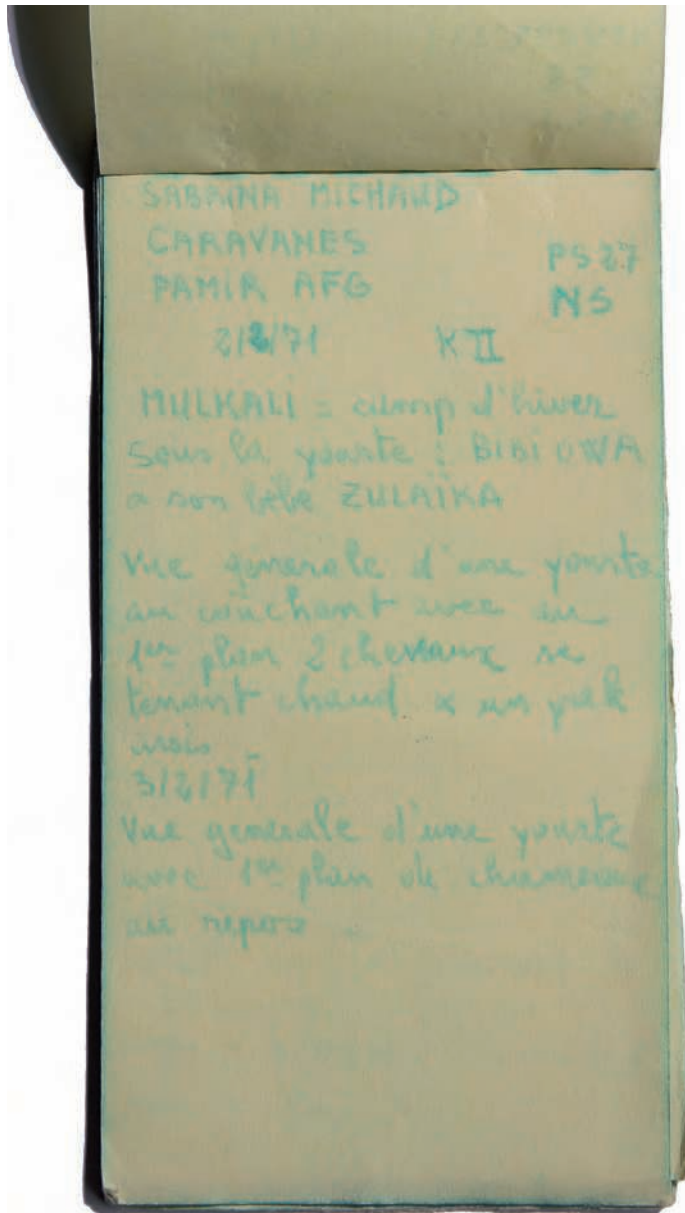 SABRINA MICHAUD
CARAVANES
PS 27
PAMIR AFG
NS
2/2/71 KII
MULKALI = camp d'hiver
sous la yourte : BIBI OWA
a son bébé ZULAÏKA
Vue generale d'une yourte
au couchant avec au
1er plan 2 chevaux se
tenant chaud & un
3/2/71
Vue generale d'une yourte
avec 1er plan de chameaux
au repos